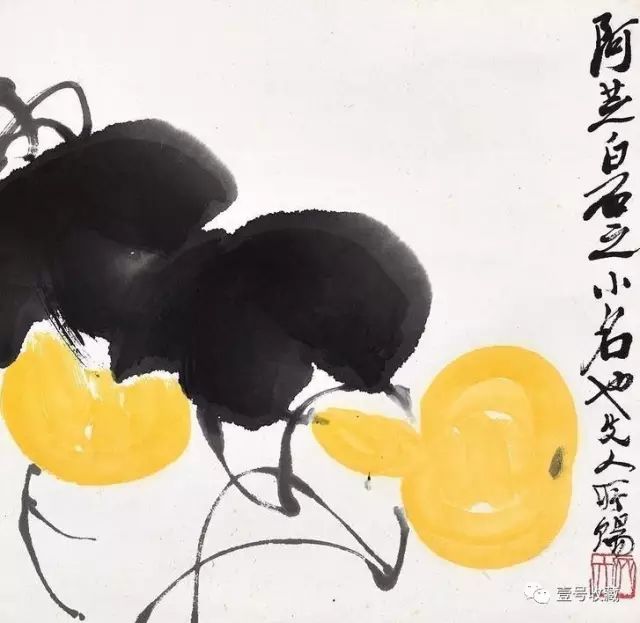 阿芝白石之小名也先人所賜
壹号收藏